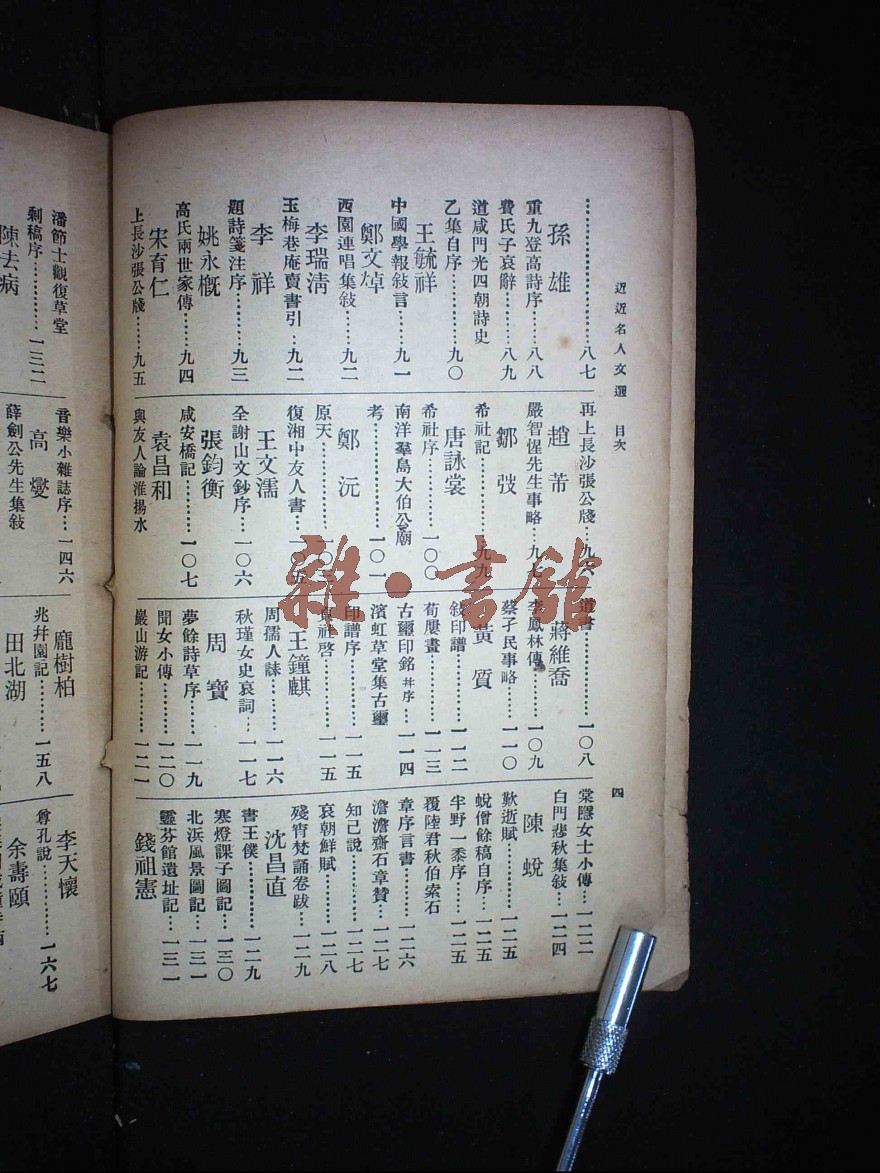 近近名人文選　目次
四
…………………八七
孫　雄
重九登高詩序……八八
費氏子哀辭………八九
道咸同光四朝詩史
乙集自序…………九〇
王毓祥
中國學報敍言……九一
鄭文焯
西園連唱集敍……九二
李瑞淸
玉梅巷庵賣書引…九二
李　祥
題詩箋注序………九三
姚永槪
高氏兩世家傳……九四
宋育仁
上長沙張公牋……九五
再上長沙張公牋…九六
趙　芾
嚴智惺先生事略…九七
鄒　弢
希社記……………九九
唐詠裳
希社序…………一〇〇
南洋羣島大伯公廟
考………………一〇一
鄭　沅
原天……………一〇三
復湘中友人書…一〇五
王文濡
全謝山文鈔序…一〇六
張鈞衡
咸安橋記………一〇七
袁昌和
與友人論淮揚水
道書……………一〇八
蔣維喬
李鳳林傳………一〇九
蔡孑民事略……一一〇
黃　質
敍印譜…………一一二
荀廔畫…………一一三
古璽印銘幷序…一一四
濱虹草堂集古璽
印譜序…………一一五
貞社啓…………一一五
王鐘麒
周孺人誄………一一六
秋瑾女史哀詞…一一七
周　寶
夢餘詩草序……一一九
聞女小傳………一二〇
嚴山游記………一二一
棠隱女士小傳…一二二
白門悲秋集敍…一二四
陳　蛻
歎逝賦…………一二五
蛻僧餘稿自序…一二五
半野一黍序……一二五
覆陸君秋伯索石
章序言書………一二六
澹澹齋石章贊…一二七
知己說…………一二七
哀朝鮮賦………一二八
殘宵梵誦卷跋…一二九
沈昌直
書王僕…………一二九
寒燈課子圖記…一三〇
北浜風景圖記…一三一
靈芬館遺址記…一三一
錢祖憲
潘節士觀復草堂
剩稿序…………一三二
陳去病
音樂小雜誌序…一四六
高　燮
薛劍公先生集敍
龐樹柏
兆幷園記………一五八
田北湖
李天懷
尊孔說…………一六七
余壽頤
雜·書館